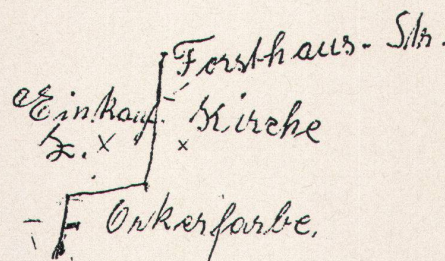 Forsthaus-Str.
Einkauf. Kirche
Z. x x
Orkerfarbe.